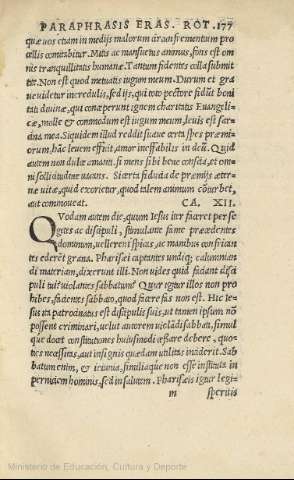 PARAPHRASIS ERAS. ROT. 177
quæ uos etiam in medijs malorum circunfrementium pro
cellis comitabitur. Mitis ac mansuetus animus, fons est om
nis tranquillitatis humanæ. Tantum fidentes colla submit
tite. Non est quod metuatis iugum meum. Durum et gra
ue uidetur incredulis, sed ijs, qui toto pectore fidunt boni
tati diuinæ, qui conceperunt ignem charitatis Euangeli
cæ, molle & commodum est iugum meum, leuis est sar
cina mea. Siquidem illud reddit suaue certa spes præmi
orum, hãc leuem efficit, amor ineffabilis in deũ. Quid
autem non dulce amanti, si mens sibi bene conscia, et om
nis sollicitudinis uacans. Si certa fiducia de præmijs æter
næ uitæ, quid exorietur, quod talem animum cõturbet,
aut commoueat. CA. XII.
QVodam autem die, quum Iesus iter faceret per se
getes ac discipuli, stimulante fame præcedentes
dominum, uellerent spicas, ac manibus confricant
tes ederẽt grana. Pharisei captantes undiq; calumnian
di materiam, dixerunt illi. Non uides quid faciant disci
puli tui? uiolantes sabbatum? Quur igitur illos non pro
hibes, facientes sabbato, quod facere fas non est. Hic Ie
sus ita patrocinatus est discipulis suis, ut tamen ipsum nõ
possent criminari, uelut autorem uiolãdi sabbati, simul
que docet constitutiones huiusmodi cessare debere, quo
ties necessitas, aut insignis quædam utilitas inciderit. Sab
batum enim, & ieiunia, similiaque non esse instituta in
perniciem hominis, sed in salutem. Pharisæis igitur legi-
m speritis
Ministerio de Educación, Cultura y Deporte